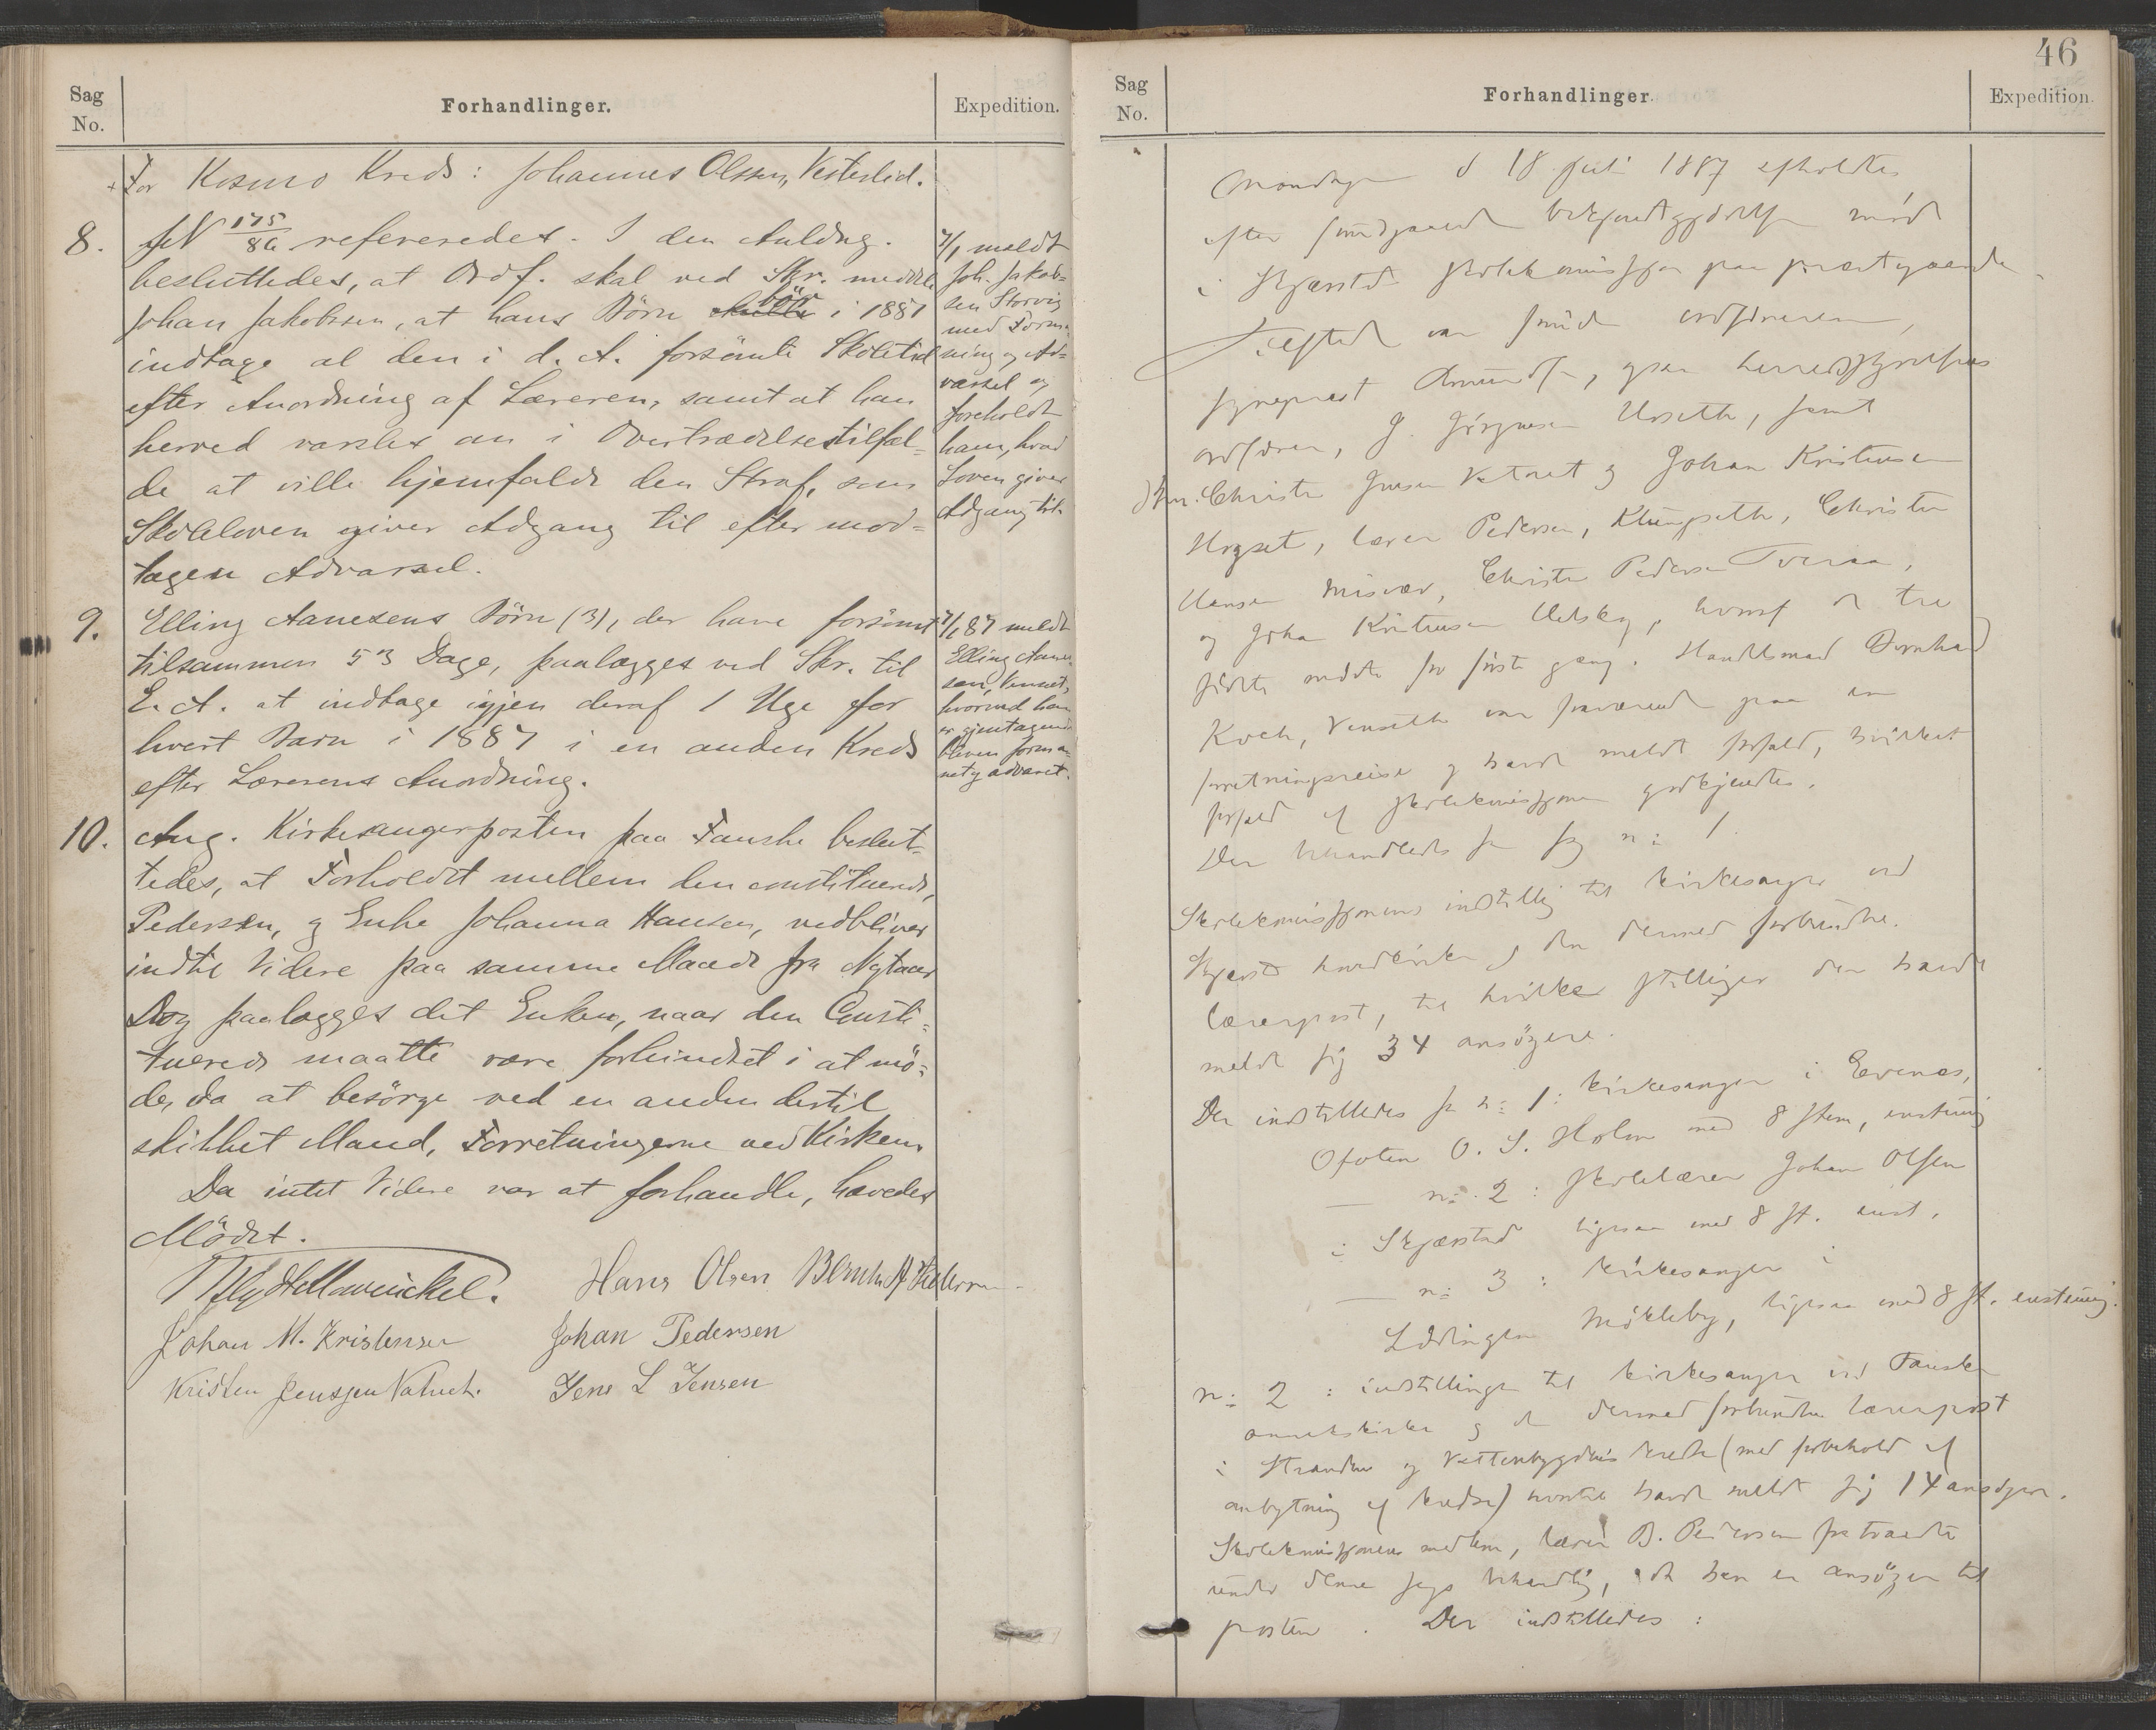 Sag
No.
Forhandlinger.
Expedition.
+ For Kosmo Kreds: Johannes Olssen, Vesterlid.
8.
JN 175/86 refereredes. I den Anldng.
besluttedes, at Ordf. skal ved Skr. meddele
Johan Jakobsen, at hans Börn bör i 1887
indtage al den i d. A. forsömte Skoletid
efter Anordning af Læreren, samt at han
herved varsles om i Overtrædelsestilfæl-
de at ville hjemfalde den Straf, som
Skoleloven giver Adgang til efter mod-
tagen Advarsel.
7/1 meldt
Joh. Jakob-
sen Storvig
med Forma-
ning og Ad-
varsel og
foreholdt
ham, hvad
Loven giver
Adgang til.
9.
Elling Aanesens Börn (3), der have forsömt
tilsammen 53 Dage, paalægges ved Skr. til
E. A. at indtage igjen deraf 1 Uge for
hvert Barn i 1887 i en anden Kreds
efter Lærerens Anordning.
7/1 87 meldt
Elling Aane-
sen, Venset,
hvorved han
er gjentagende
bleven forma-
net og advaret.
10.
Ang. Kirkesangerposten paa Fauske beslut-
tedes, at Forholdet mellem den constituerede,
Pedersen, og Enke Johanna Hansen, vedbliver
indtil Videre paa samme Maade fra Nytaar
Dog paalægges det Enken, naar den Consti-
tuerede maatte være forhindret i at mö-
de, da at besörge ved en anden dertil
skikket Mand, Forretningerne ved Kirken.
Da intet Videre var at forhandle, hævedes
Mödet.
Hans Olsen
Johan M. Kristensen Johan Pedersen
Kristen Jenssen Jens L Jensen
46
Sag
No.
Forhandlinger.
Expedition.
Mandag d 18 juli 1887 afholdtes
efter bekjendtgjörelse möde
i Skjerstad skolekommission paa præstegaarden.
Tilstede var ordföreren,
sogneprest, herredsstyrelsens
ordförer, J. Jörgensen Ursetth, samt
Christen Jensen og Johan Kristensen
lærer Pedersen, Klungsetth, Christen
Hansen Misvær, Christen Pedersen Tveraa,
og Johan Kristensen, hvoraf de tre
sidste mödte for förste gang. Handelsmand Bernhard
Koch, Vensetth var fraværende paa en
forretningsreise og havde meldt forfald, hvilket
forfald af skolekommissionen godkjendtes.
Der behandledes sag n: 1
Skolekommissionens indstilling til kirkesanger ved
Skjerstad hovedkirke og den dermed forbundne
lærerpost, til hvilke stillinger der havde
meldt sig 34 ansögere.
Der indstilledes n: 1: kirkesanger i Evenes,
Ofoten O. S. Holm med 8 stem, enstemig
— n: 2: skolelærer Johan Olsen
i Skjærstad ligesaa med 8 st. enst.
— n: 3: kirkesanger i
Lödingen Mökleby, ligesaa med 8 st. enstemig.
n: 2: indstillinger til kirkesanger ved Fauske
annekskirke og den dermed forbundne lærerpost
i Stranden og Vestenbygdens kreds (med forbehold af
ombytning af kredse) hvortil havde meldt sig 14 ansögere.
Skolekommissionens medlem, lærer B. Pedersen fratraadte
under denne sags behandling, da han er ansöger til
posten. Der indstilledes: